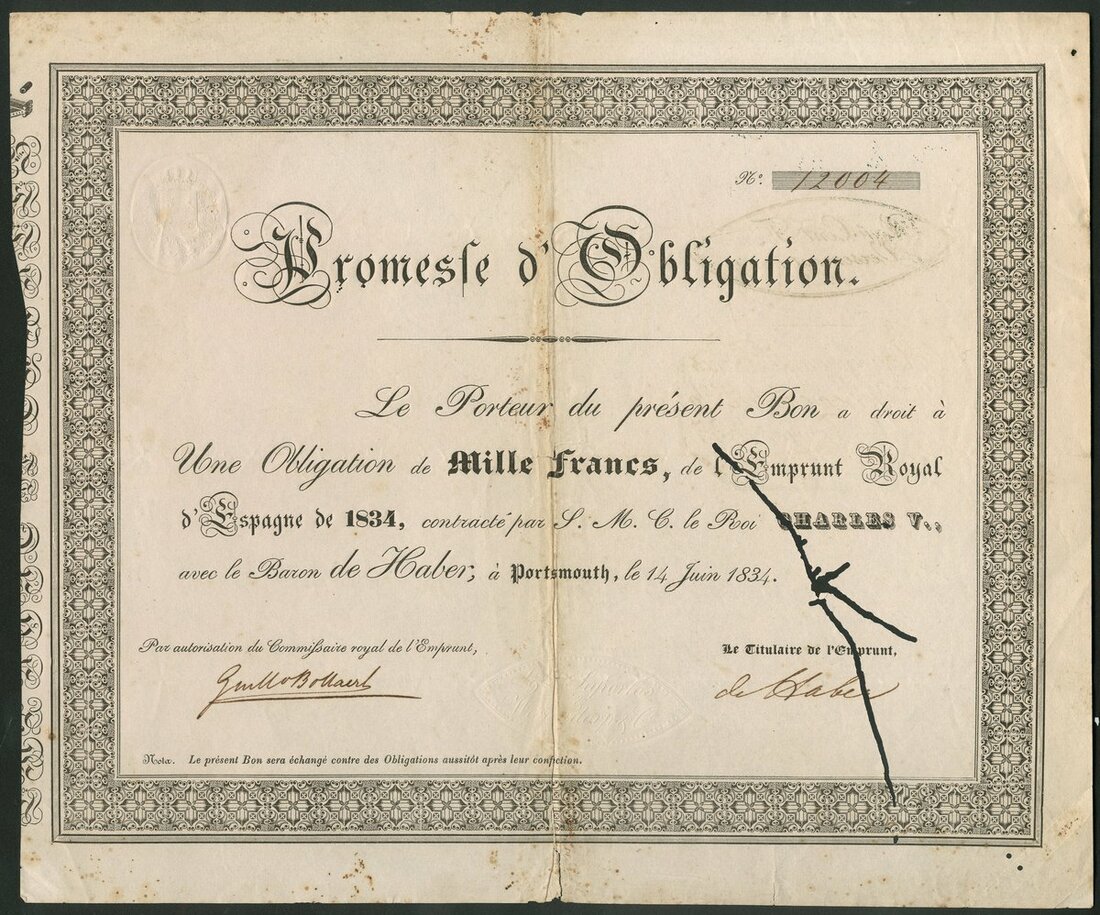 Nº. 12004
Promesse d'Obligation.
Le Porteur du présent Bon a droit à
Une Obligation de Mille Francs, de l'Emprunt Royal
d'Espagne de 1834, contracté par S. M. C. le Roi CHARLES V.,
avec le Baron de Haber, à Portsmouth, le 14 Juin 1834.
Par autorisation du Commissaire royal de l'Emprunt,
Le Titulaire de l'Emprunt,
Guillo Bollaert
de Haber
Nota. Le présent Bon sera échangé contre des Obligations aussitôt après leur confection.